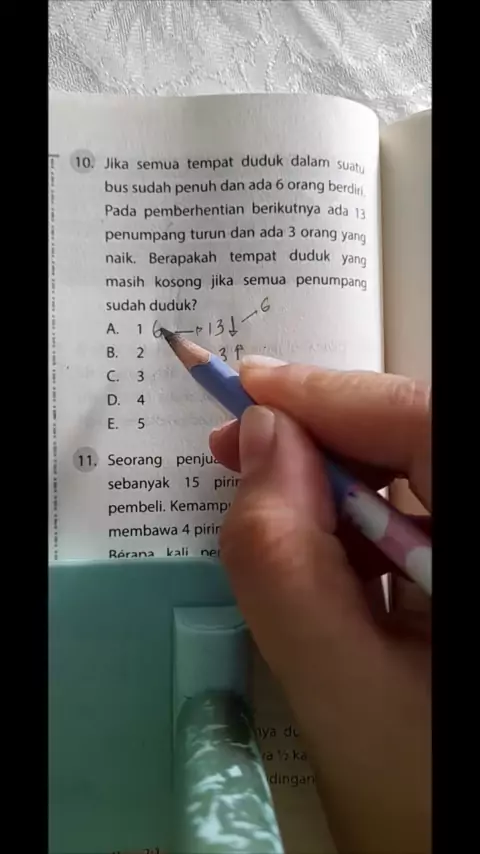 10. Jika semua tempat duduk dalam suatu
bus sudah penuh dan ada 6 orang berdiri.
Pada pemberhentian berikutnya ada 13
penumpang turun dan ada 3 orang yang
naik. Berapakah tempat duduk yang
masih kosong jika semua penumpang
sudah duduk?
A. 1 6 → 13 ↓ 6
B. 2 3 ↑
C. 3
D. 4
E. 5
11. Seorang
sebanyak 15
pembeli.
membawa 4
Berapa kali
½